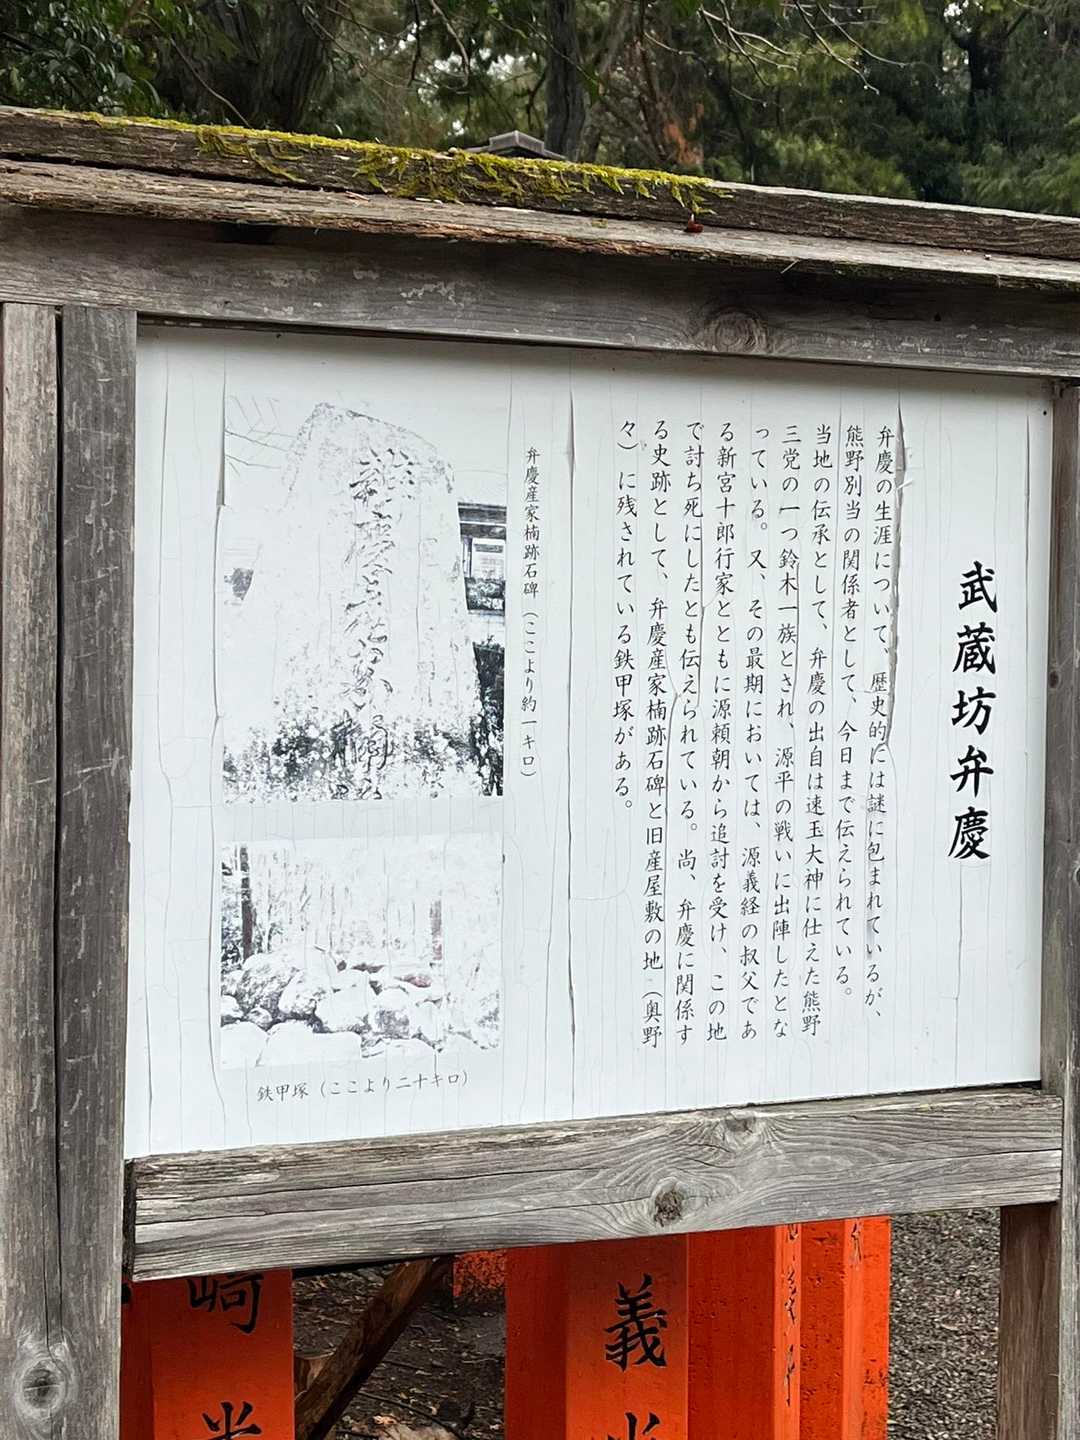 武蔵坊弁慶
弁慶の生涯について、歴史的には謎に包まれているが、
熊野別当の関係者として、今日まで伝えられている。
当地の伝承として、弁慶の出自は速玉大神に仕えた熊野
三党の一つ鈴木一族とされ、源平の戦いに出陣したとな
っている。又、その最期においては、源義経の叔父であ
る新宮十郎行家とともに源頼朝から追討を受け、この地
で討ち死にしたとも伝えられている。尚、弁慶に関係す
る史跡として、弁慶産家楠跡石碑と旧産屋敷の地（奥野
々）に残されている鉄甲塚がある。
弁慶産家楠跡石碑（ここより約一キロ）
鉄甲塚（ここより二十キロ）
義
崎